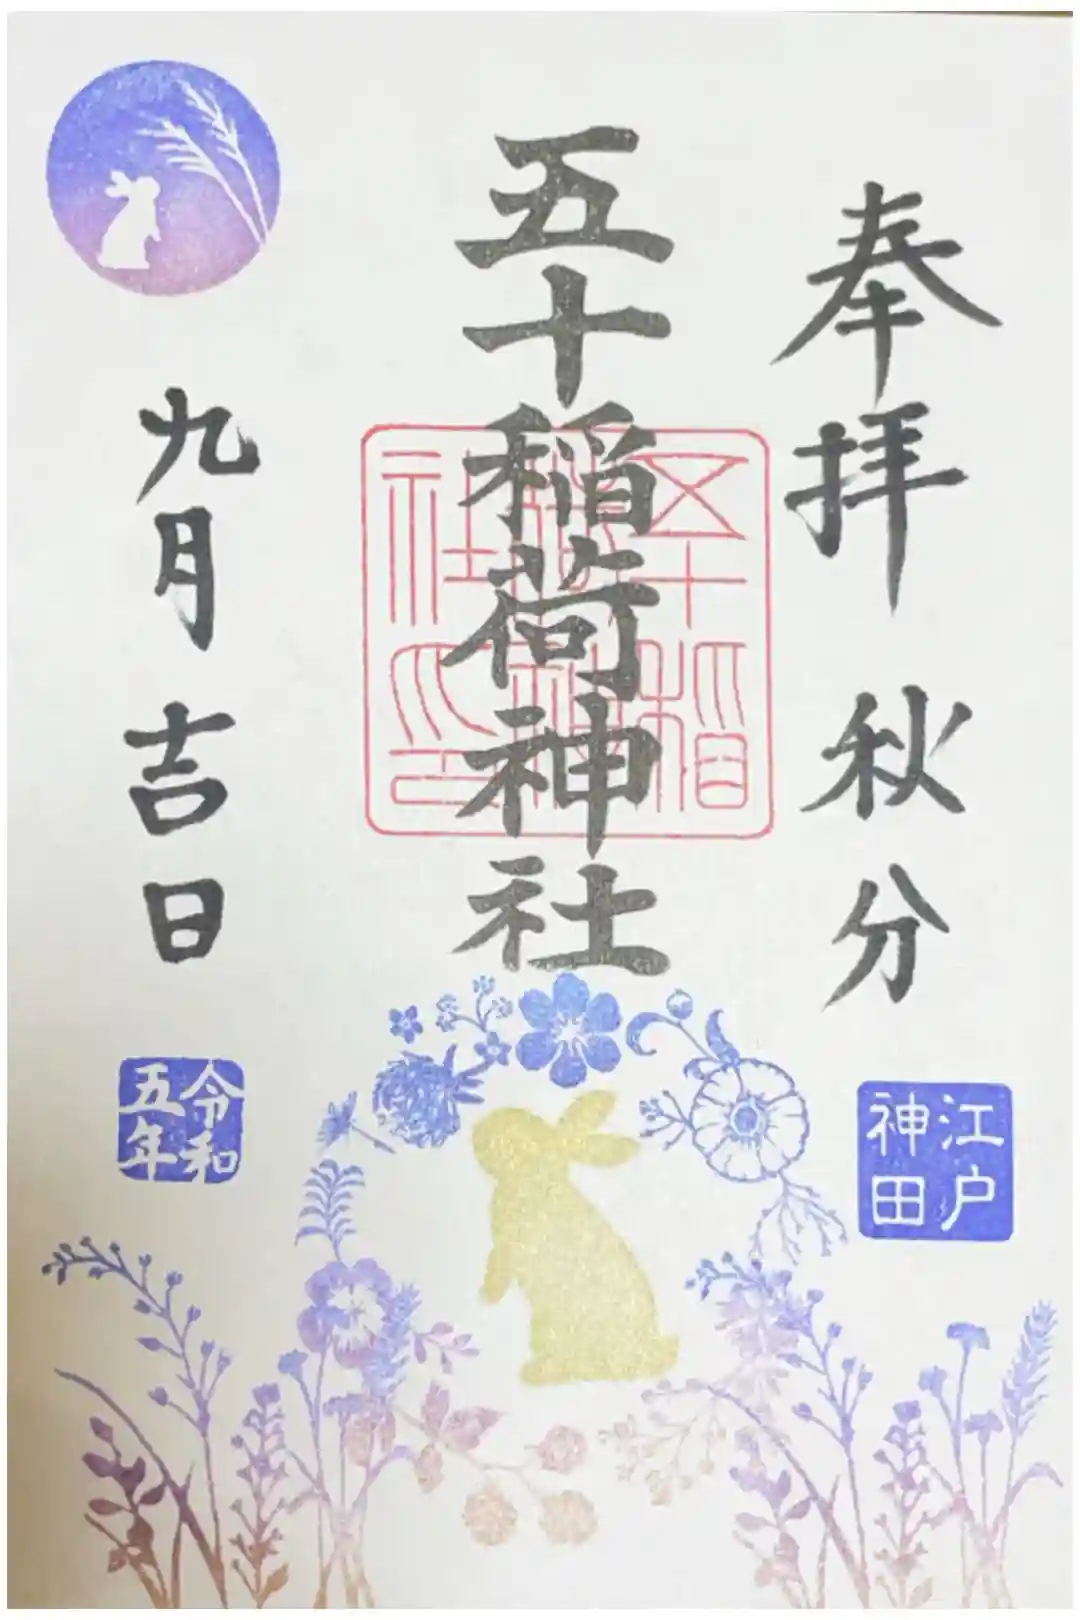 奉拝 秋分
江戸
神田
五十稲荷神社
五十稲
荷神
社之印
九月吉日
令和
五年